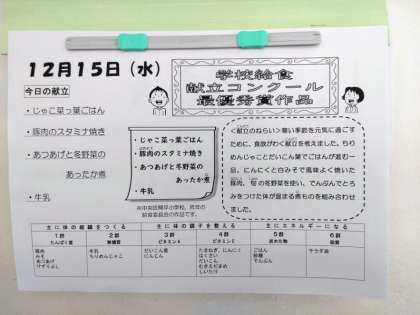 12月15日（水）
学校給食
献立コンクール
最優秀賞作品
今日の献立
・じゃこ菜っ葉ごはん
・豚肉のスタミナ焼き
・あつあげと冬野菜の
あったか煮
・牛乳
・じゃこ菜っ葉ごはん
・豚肉のスタミナ焼き
・あつあげと冬野菜の
あったか煮
・牛乳
給食委員会の作品です。
＜献立のねらい＞寒い季節を元気に過ごす
ために、食欲がわく献立を考えました。ちり
めんじゃことだいこん葉でごはんが進む一
品、にんにくと白みそで風味よく焼いた
豚肉、旬の冬野菜を使い、でんぷんでとろ
みをつけた体が温まる煮ものを組み合わせ
ました。
主に体の組織をつくる
主に体の調子を整える
主にエネルギーになる
1群
たんぱく質
2群
無機質
3群
ビタミンA
4群
ビタミンC
5群
炭水化物
6群
脂質
豚肉
みそ
あつあげ
けずりぶし
牛乳
ちりめんじゃこ
だいこん葉
にんじん
たまねぎ、にんにく
はくさい
だいこん
むきえだまめ
しいたけ
ごはん
砂糖
でんぷん
サラダ油